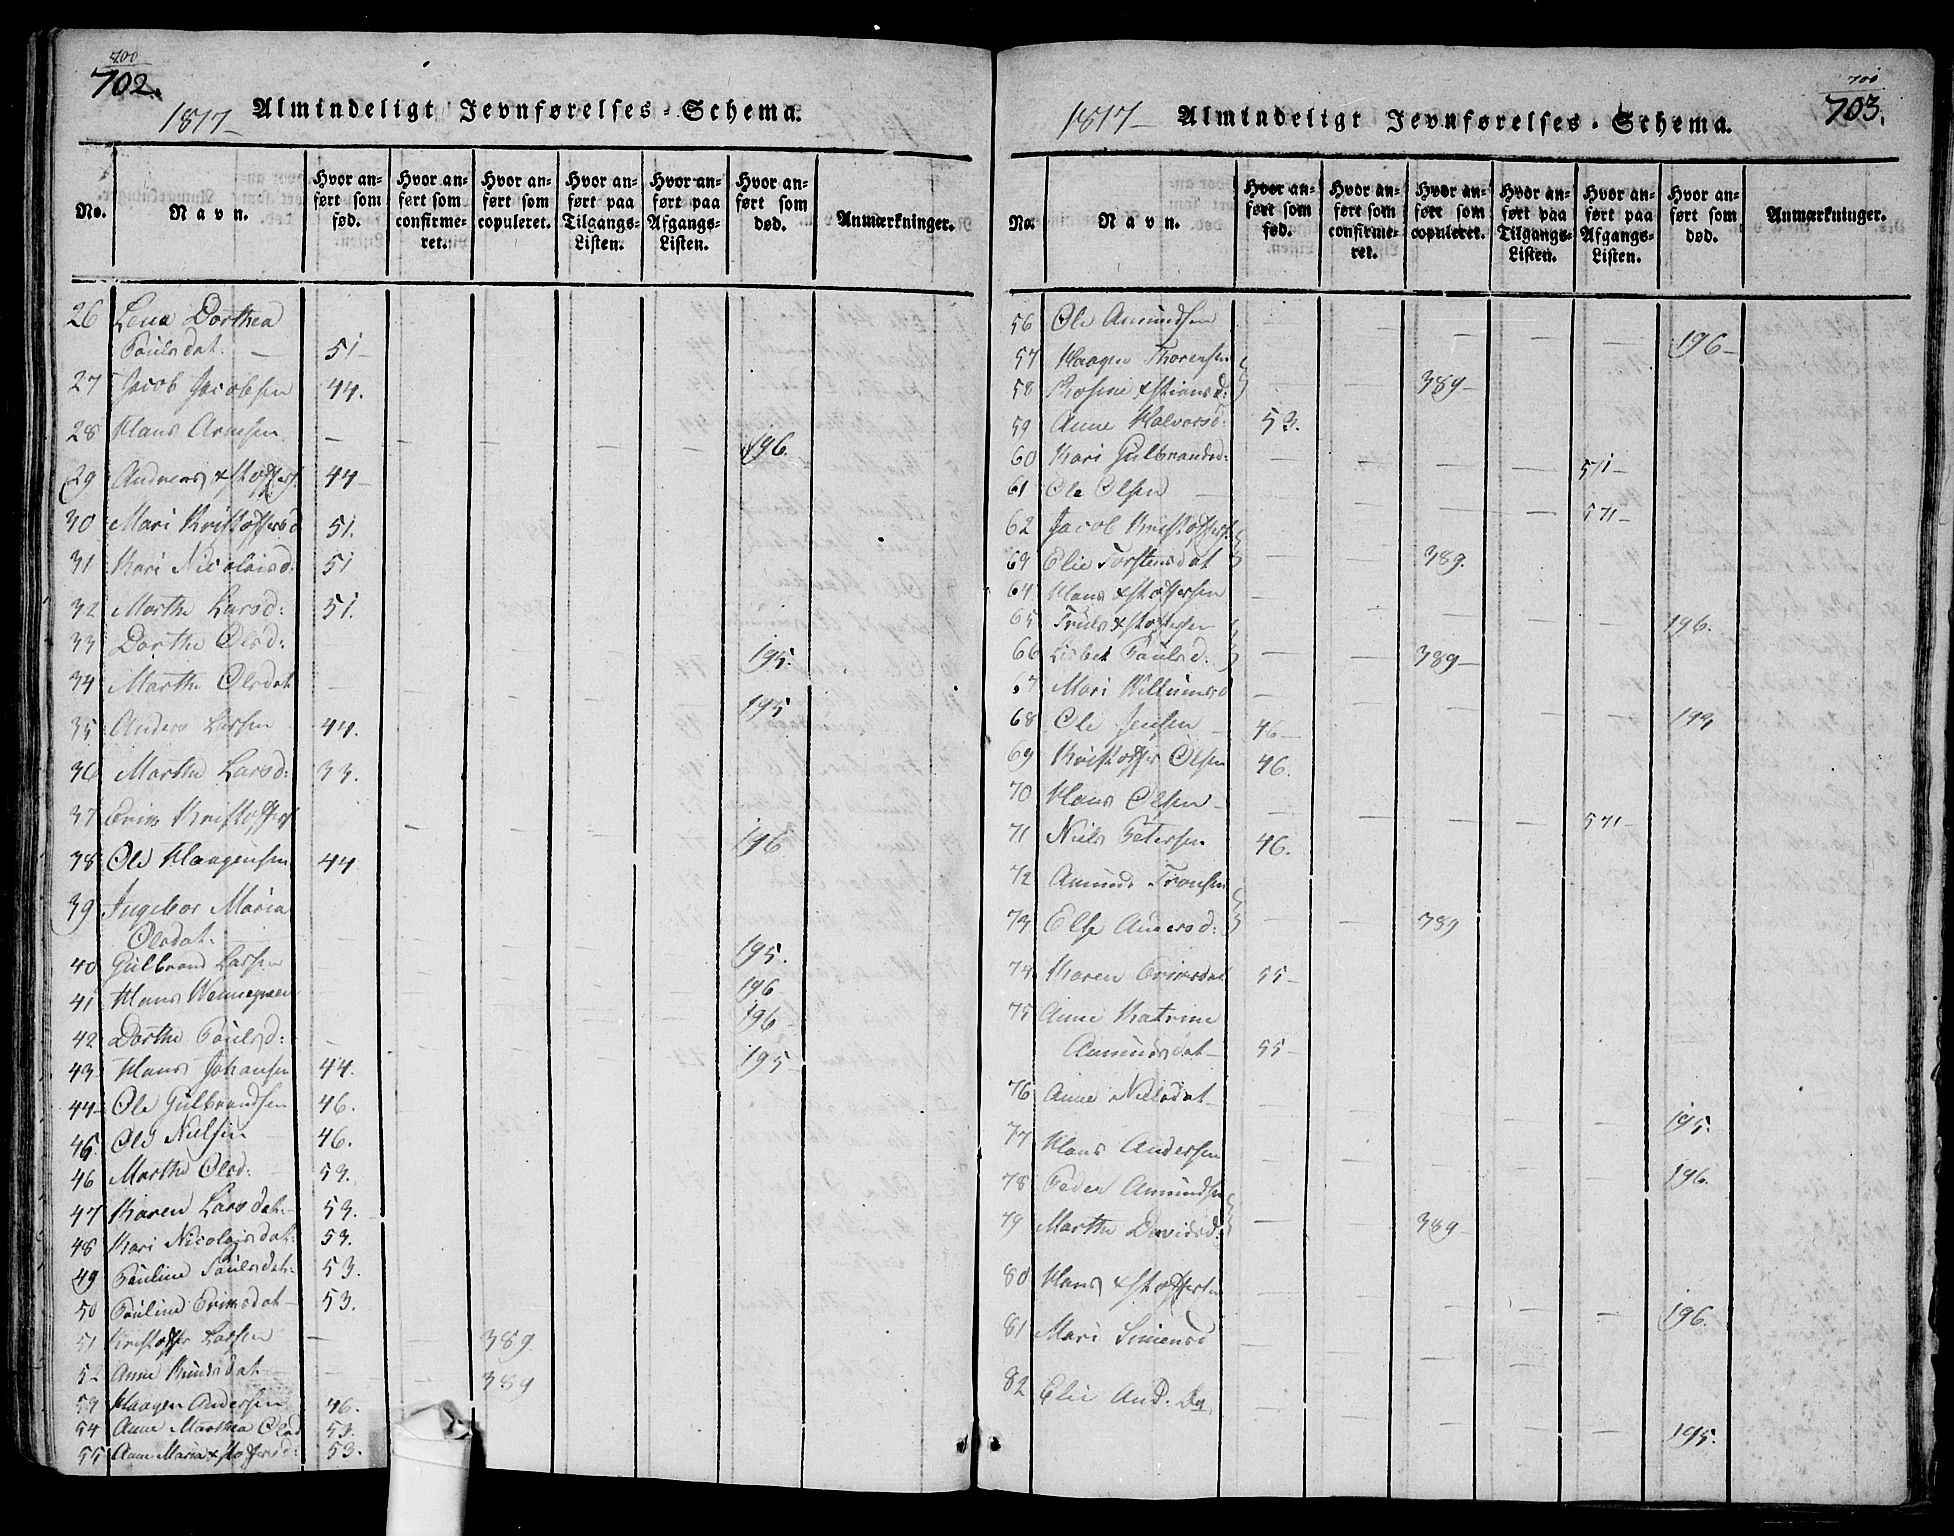 700
702.
1817 Almindeligt Jevnførelses-Schema.
No. Navn. Hvor anført som fød. Hvor anført som confirmeret. Hvor anført som copuleret. Hvor anført paa Tilgangs-Listen. Hvor anført paa Afgangs-Listen. Hvor anført som død. Anmærkninger.
26 Lena Dorthea
Paulsdat. — 51 —
27 Jacob Jacobsen 44.
28 Hans Arnesen — — — — — 196.
29 Andreas xstoffers. 44 —
30 Mari Kristoffersd 51.
31 Kari Nicolaisd. 51
32 Marthe Larsd: 51.
33 Dorthe Olsd: 195.
34 Marthe Olsdat 195
35 Anders Larsen 44.
36 Marthe Larsd: 33.
37 Kristoffers 196
38 Ole Haagensen 44
39 Ingebor Maria
Olsdat. 195.
40 Gulbrand Larsen 196
41 Hans 196 —
42 Dorthe Paulsd: — 195 —
43 Hans Johansen 44.
44 Ole Gulbrandsen 46.
45 Ole Nielsen 46.
46 Marthe Olsd: 53.
47 Karen Larsdat. 53.
48 Kari Nicolaisdat. 53.
49 Pauline Paulsdat. 53.
50 Pauline 53.
51 Kristoffer Larsen — 389
52 Anne Knudsdat 389
53 Haagen Andersen 46.
54 Anne Marthea Olsd 53.
55 Anne Maria xstoffersd: 53.
700
703.
1817 Almindeligt Jevnførelses-Schema.
No. Navn. Hvor anført som fød. Hvor anført som confirmeret. Hvor anført som copuleret. Hvor anført paa Tilgangs-Listen. Hvor anført paa Afgangs-Listen. Hvor anført som død. Anmærkninger.
56 Ole Amundsen — — — — — 196 —
57 Haagen Thorensen
58 Rosine xstiansd: — — 389 —
59 Anne Halvorsd: 53.
60 Kari Gulbrandsd: 571 —
61 Ole Olsen — 571 —
62 Jacob Kristoffers.
63 Elie Torstensdat — — 389.
64 Hans xstoffersen — 196.
65 Truls xstoffersen
66 Lisbet Paulsd: — — 389 —
67 Mari — 193
68 Ole Jensen 46 —
69 Kristoffer Olsen 46.
70 Hans Olsen — 571 —
71 Niels Petersen 46.
72 Amund Tronsen
73 Else Andersd: — — 389
74 Karen 55 —
75 Anne Katrine
Amundsdat — 55 —
76 Anne Nielsdat — 195.
77 Hans Andersen 196.
78 Peder Amundsen
79 Marthe Davidsd: — — 389 —
80 Hans xstoffersen 196.
81 Mari Simensd
82 Elie And. Da. 195.